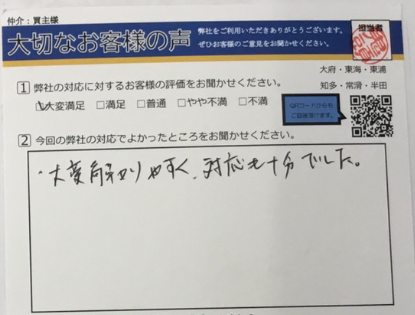 仲介：買主様
大切なお客様の声
弊社をご利用いただきありがとうございます。
ぜひお客様のご意見をお聞かせください。
担当者
大府・東海・東浦
知多・常滑・半田
1 弊社の対応に対するお客様の評価をお聞かせください。
□大変満足 □満足 □普通 □やや不満 □不満
QRコードからも
ご回答頂けます。
2 今回の弊社の対応でよかったところをお聞かせください。
・大変解りやすく、対応も十分でした。